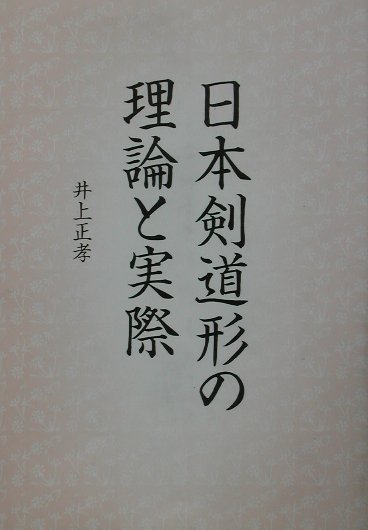 日本剣道形の
理論と実際
井上正孝